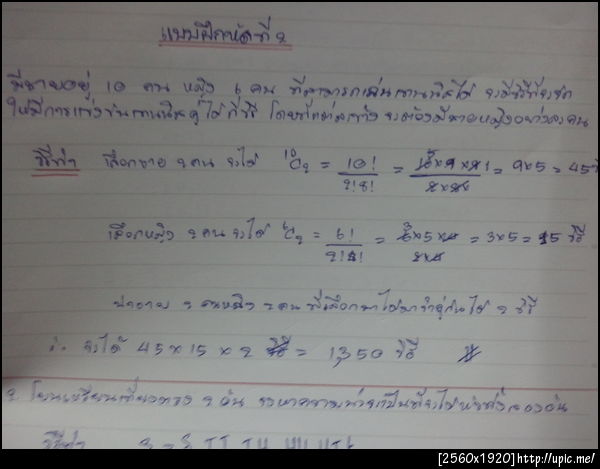 แบบฝึกหัดที่ 2
มีชายอยู่ 10 คน หญิง 6 คน ที่สามารถเล่นเทนนิสได้ จงมีวิธีที่จะจัด
ให้มีการแข่งขันเทนนิสคู่ได้กี่วิธี โดยที่แต่ละข้าง จะต้องมีชายหญิงอย่างละคน
วิธีทำ เลือกชาย 2 คน จะได้ ¹⁰C₂ = 10!/2!8! = 10×9×8!/2×8! = 9×5 = 45 วิธี
เลือกหญิง 2 คน จะได้ ⁶C₂ = 6!/2!4! = 6×5×4!/2×4! = 3×5 = 15 วิธี
นำชาย 2 คนหญิง 2 คน ที่เลือกมาได้มาจับคู่กันได้ 2 วิธี
∴ จะได้ 45×15×2 = 1,350 วิธี
2. โยนเหรียญเที่ยงตรง 2 อัน จงหาความน่าจะเป็นที่จะได้หัวทั้งสองอัน
วิธีทำ
[2560x1920]http://upic.me/